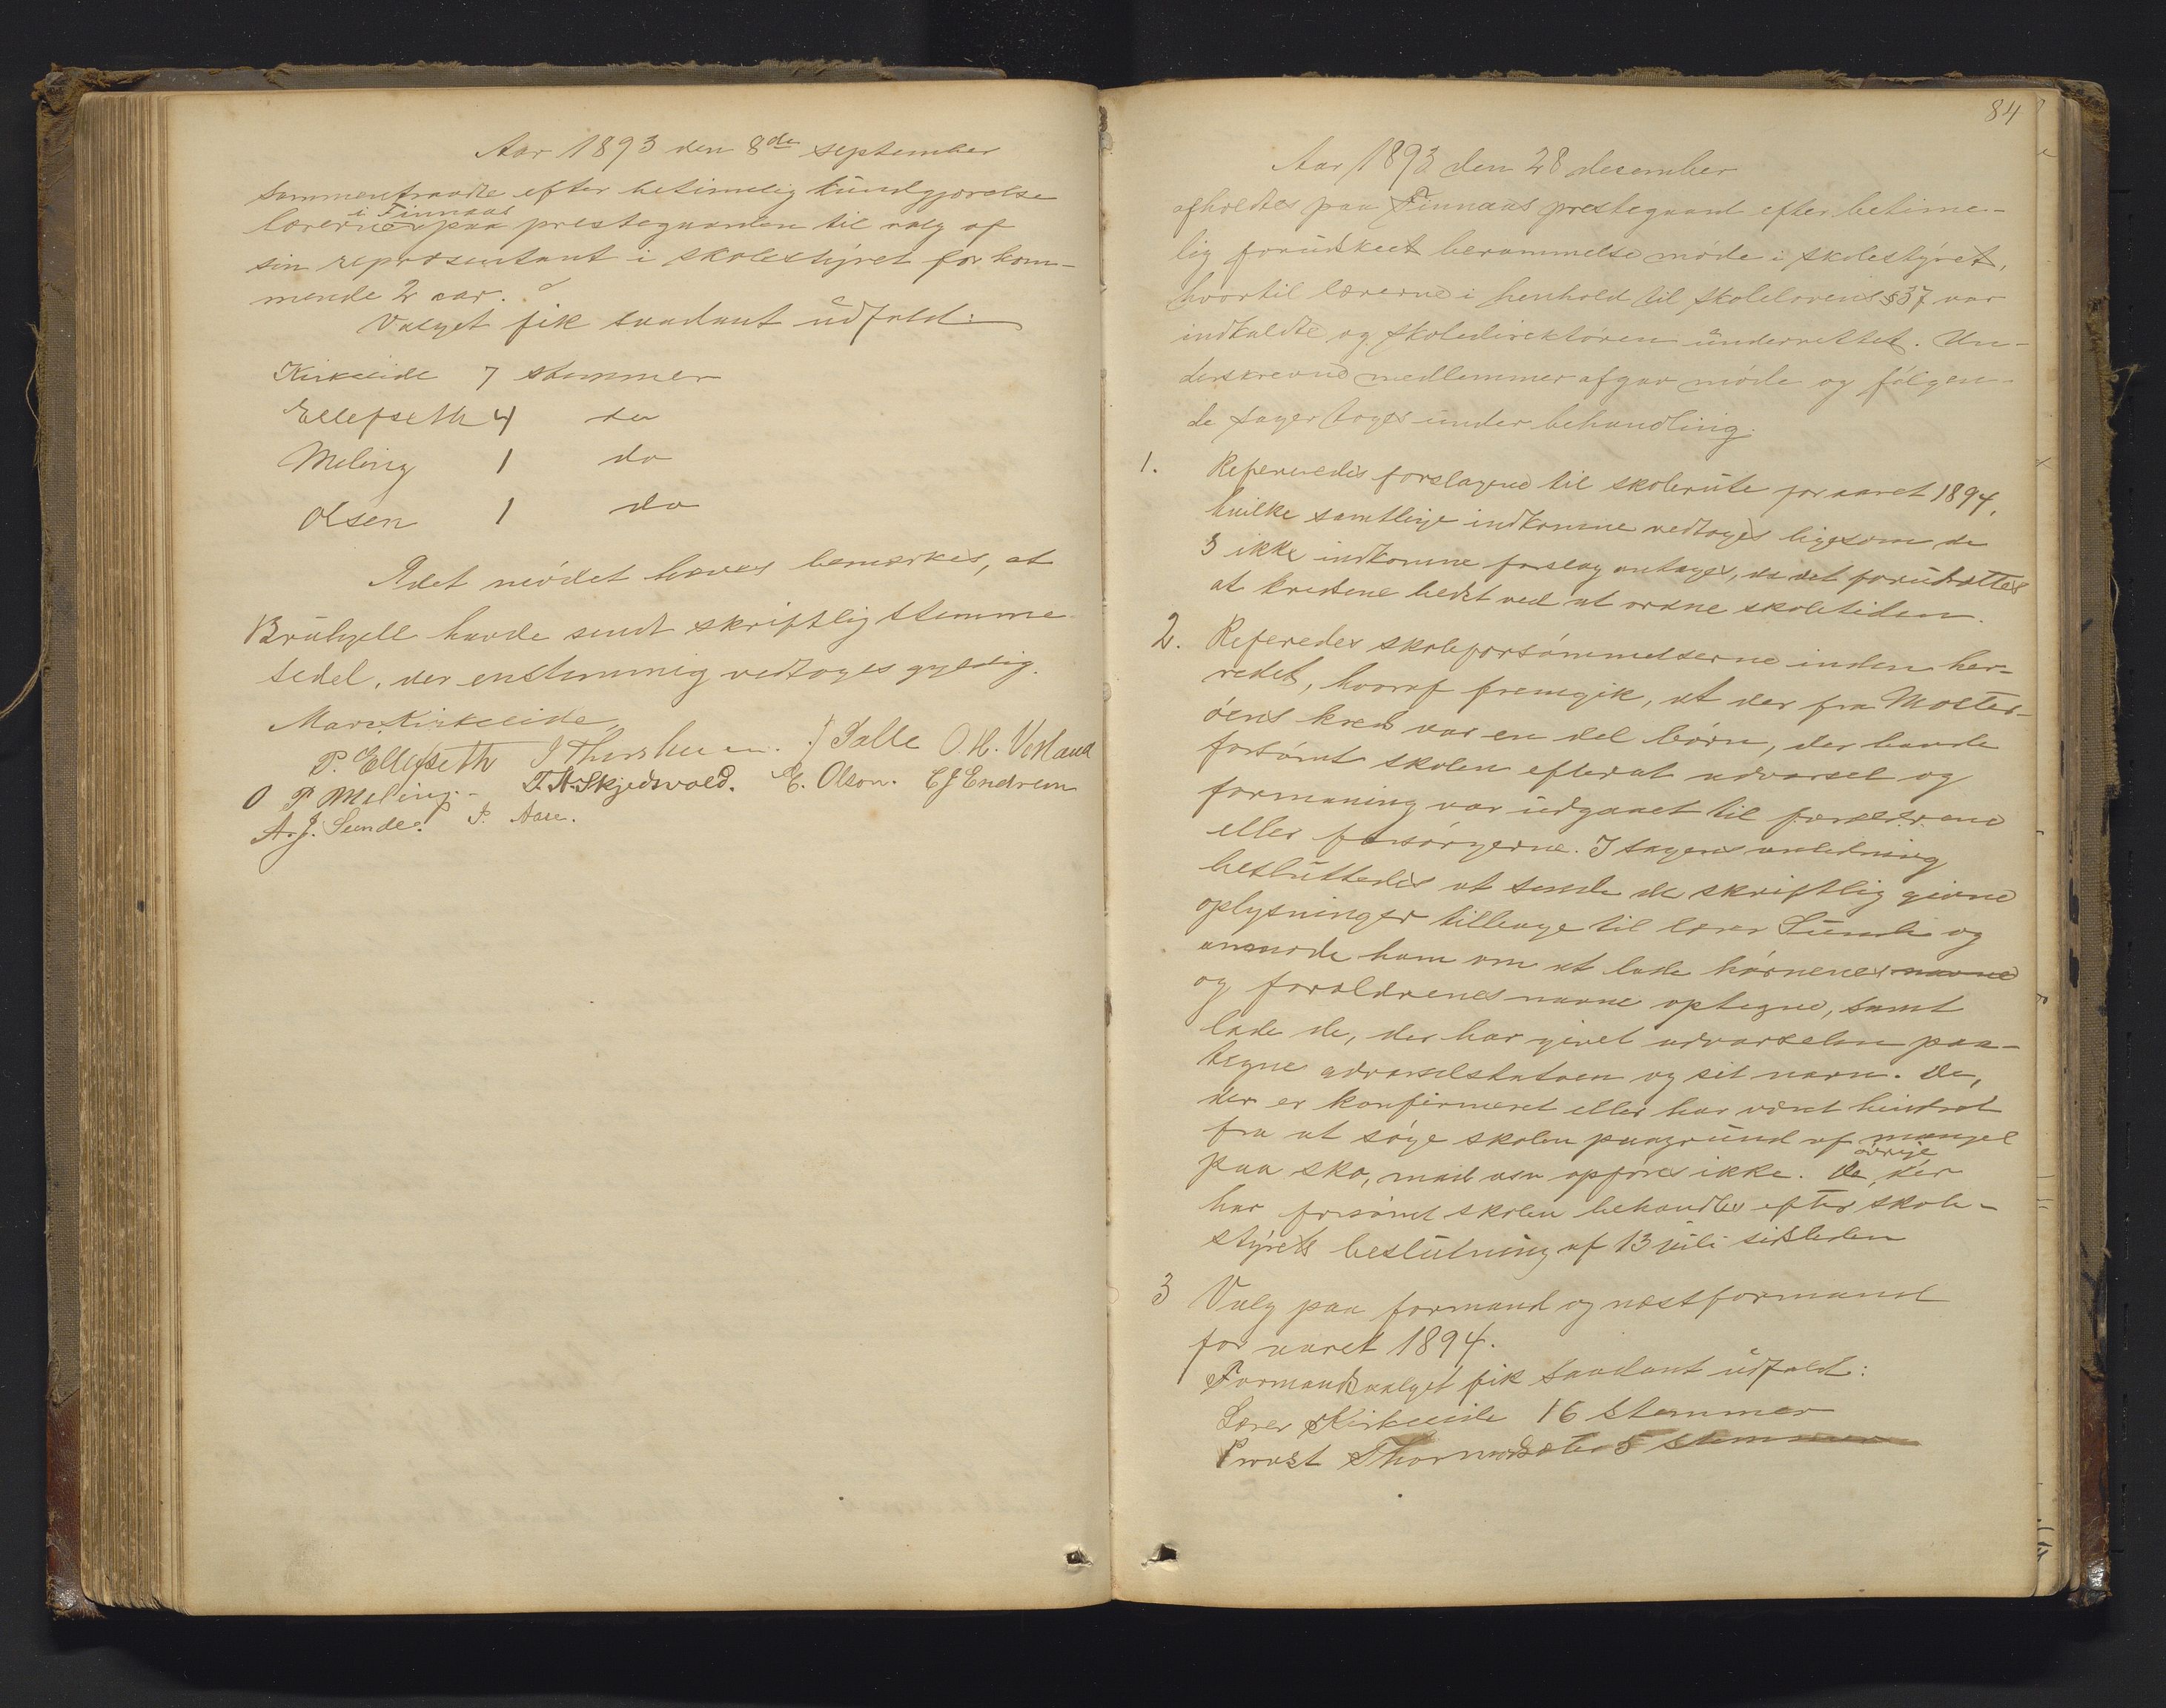 Aar 1893 den 8de september
sammentraadte efter betimelig kundgjørelse
i Finnaas
lærerne paa prestegaarden til valg af
sin repræsentant i skolestyret for kom-
mende 2 aar.
Valget fik saadant udfald:
Kirkeeide 7 stemmer
Ellefseth 4 do
Meling 1 do
Olsen 1 do
Adet mødet hæves bemerkes, at
Brühjell havde sendt skriftlig stemme-
sedel, der enstemmig vedtoges gyldig.
Mars Kirkeeide
P. Ellefseth J Thorsheim. J Salle O. H. Vestland
O P Meling. T. A. Skjedsvold. E. Olson. C J Endresen
A. J. Sunde. P. Aase.
84
Aar 1893 den 28 desember
afholdtes paa Finnaas prestegaard efter betime-
lig forudskeet berammelse møde i skolestyret,
hvortil lærerne i henhold til skolelovens § 37 var
indkaldte og skoledirektøren underrettet. Un-
derskrevne medlemmer afgav møde og følgen-
de sager toges under behandling.
1. Refereredes forslagene til skolerute for aaret 1894,
hvilke samtlige indkomne vedtoges ligesom de
3 ikke indkomne forslag antages, da det forudsættes
at kredsene bedst ved at ordne skoletiden.
2. Referedes skoleforsømmelserne inden her-
redet, hvoraf fremgik, at der fra Moster-
øens kreds var en del børn, der havde
forsømt skolen efterat advarsel og
formaning var udgaaet til forældrene
eller forsørgerne. I sagens anledning
besluttedes at sende de skriftlig givne
oplysninger tilbage til lærer Sunde og
anmode ham om at lade børnenes navne
og forældrenes navne optegne, samt
lade de, der har givet advarselen paa-
tegne advarselsdatoen og sit navn. De,
der er konfirmeret eller har været hindret
fra at søge skolen paagrund af mangel
paa sko, mad osv opføres ikke. De øvrige, der
har forsømt skolen behandles efter skole-
styrets beslutning af 13 juli sidstleden
3 Valg paa formand og næstformand
for aaret 1894.
Formandsvalget fik saadant udfald:
Lærer Kirkeeide 16 stemmer
Provst Thormodsæter 5 stemmer